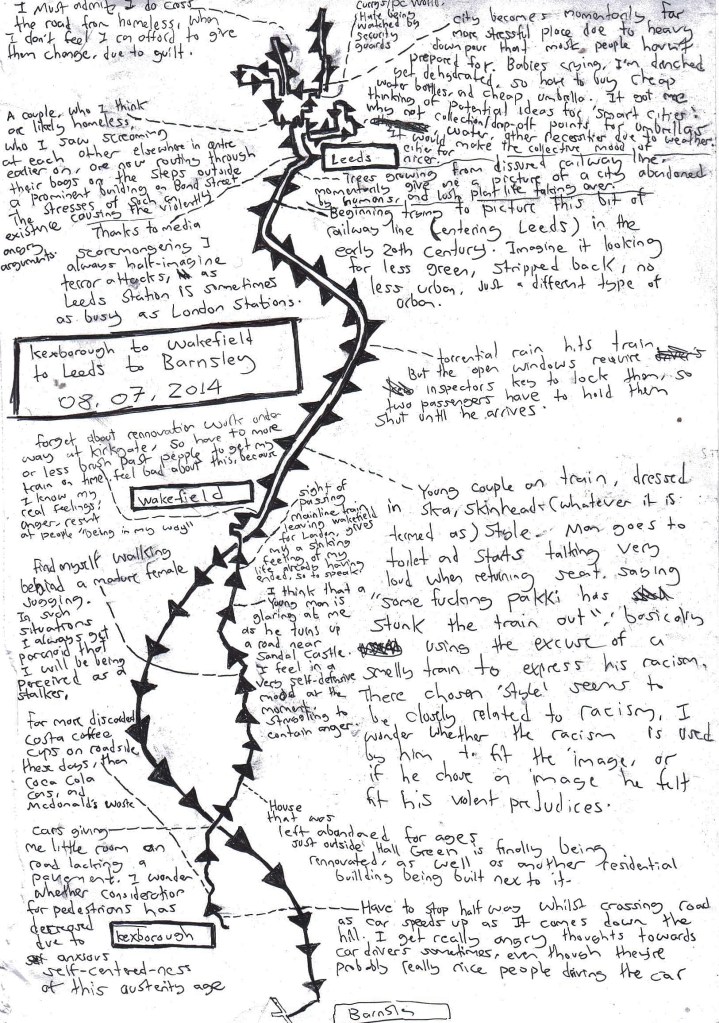 I must admit I do cross
the road from homeless, when
I don't feel I can afford to give
them change, due to guilt.
Currys/pc World.
Hate being
watched by
security
guards
city becomes momentarily far
more stressful place due to heavy
downpour that most people haven't
prepared for. Babies crying, I'm drenched
yet dehydrated, so have to buy cheap
water bottles, and cheap umbrella. It got me
thinking of potential ideas for 'smart cities'
why not collection/drop-off points for umbrellas
water, other necessities due to weather.
It would make the collective mood of
cities far nicer.
A couple, who I think
are likely homeless,
who I saw screaming
at each other elsewhere in centre
earlier on, are now routing through
their bags on the steps outside
a prominent building on Bond Street
The stresses of such an
existence causing the violently
angry
arguments.
Leeds
Trees growing from disused railway line
momentarily give me a picture of a city abandoned
by humans, and lush plant life taking over.
Beginning trying to picture this bit of
railway line (entering Leeds) in the
early 20th century. Imagine it looking
far less green, stripped back, no
less urban, just a different type of
urban.
Thanks to media
scaremongering I
always half-imagine
terror attacks, as
Leeds Station is sometimes
as busy as London Stations.
Kexborough to Wakefield
to Leeds to Barnsley
08.07.2014
torrential rain hits train
But the open windows require
inspectors key to lock them, so
two passengers have to hold them
shut until he arrives.
forget about rennovation work under
way at kirkgate, so have to more
or less brush past people to get my
train on time. feel bad about this, because
I know my
real feelings;
anger result
at people "being in my way"
Wakefield
sight of
passing
mainline train
leaving wakefield
for London, gives
me a sinking
feeling of my
life already having
ended, so to speak
Young couple on train, dressed
in ska, skinhead (whatever it is
termed as) style. Man goes to
toilet and starts talking very
loud when returning seat, saying
"some fucking pakki has
stunk the train out"; basically
using the excuse of a
smelly train to express his racism.
There chosen 'style' seems to
be closely related to racism, I
wonder whether the racism is used
by him to fit the 'image, or
if he chose an image he felt
fit his violent prejudices.
find myself walking
behind a mature female
jogging.
In such
situations
I always get
paranoid that
I will be being
perceived as a
stalker.
I think that a
Young man is
glaring at me
as he turns up
a road near
Sandal Castle.
I feel in a
very self-defensive
mood at the
moment.
Struggling to
contain anger.
far more discarded
Costa coffee
cups on roadside
these days, than
Coca Cola
cans, and
McDonald's waste
House
that was
left abandoned for ages
just outside Hall Green is finally being
rennovated, as well as another residential
building being built next to it.
Cars giving
me little room on
road lacking a
pavement. I wonder
whether consideration
for pedestrians has
decreased
due to
anxious
self-centred-ness
of this austerity age
Kexborough
Have to stop half way whilst crossing road
as car speeds up as it comes down the
hill. I get really angry thoughts towards
car drivers sometimes, even though they're
probably really nice people driving the car
Barnsly